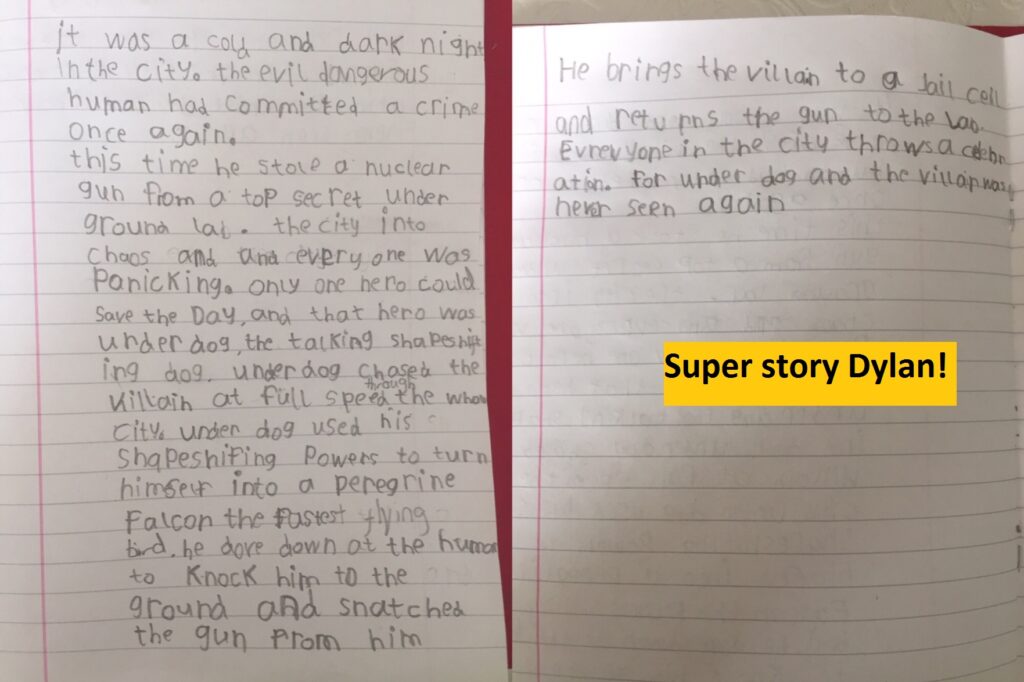 it was a cold and dark night
in the city. the evil dangerous
human had committed a crime
once again.
this time he stole a nuclear
gun from a top secret under
ground lab. the city into
chaos and and every one was
Panicking. only one hero could
save the Day, and that hero was
under dog, the talking shapeshift
ing dog. under dog chased the
villain at full speed through the whole
city. under dog used his
shapeshifing Powers to turn
himself into a peregrine
Falcon the fastest flying
bird. he dove down at the human
to knock him to the
ground and snatched
the gun from him
He brings the villain to a Jail cell
and returns the gun to the lab.
Evreyyone in the city throws a celebr
ation. for under dog and the villain was
never seen again
Super story Dylan!